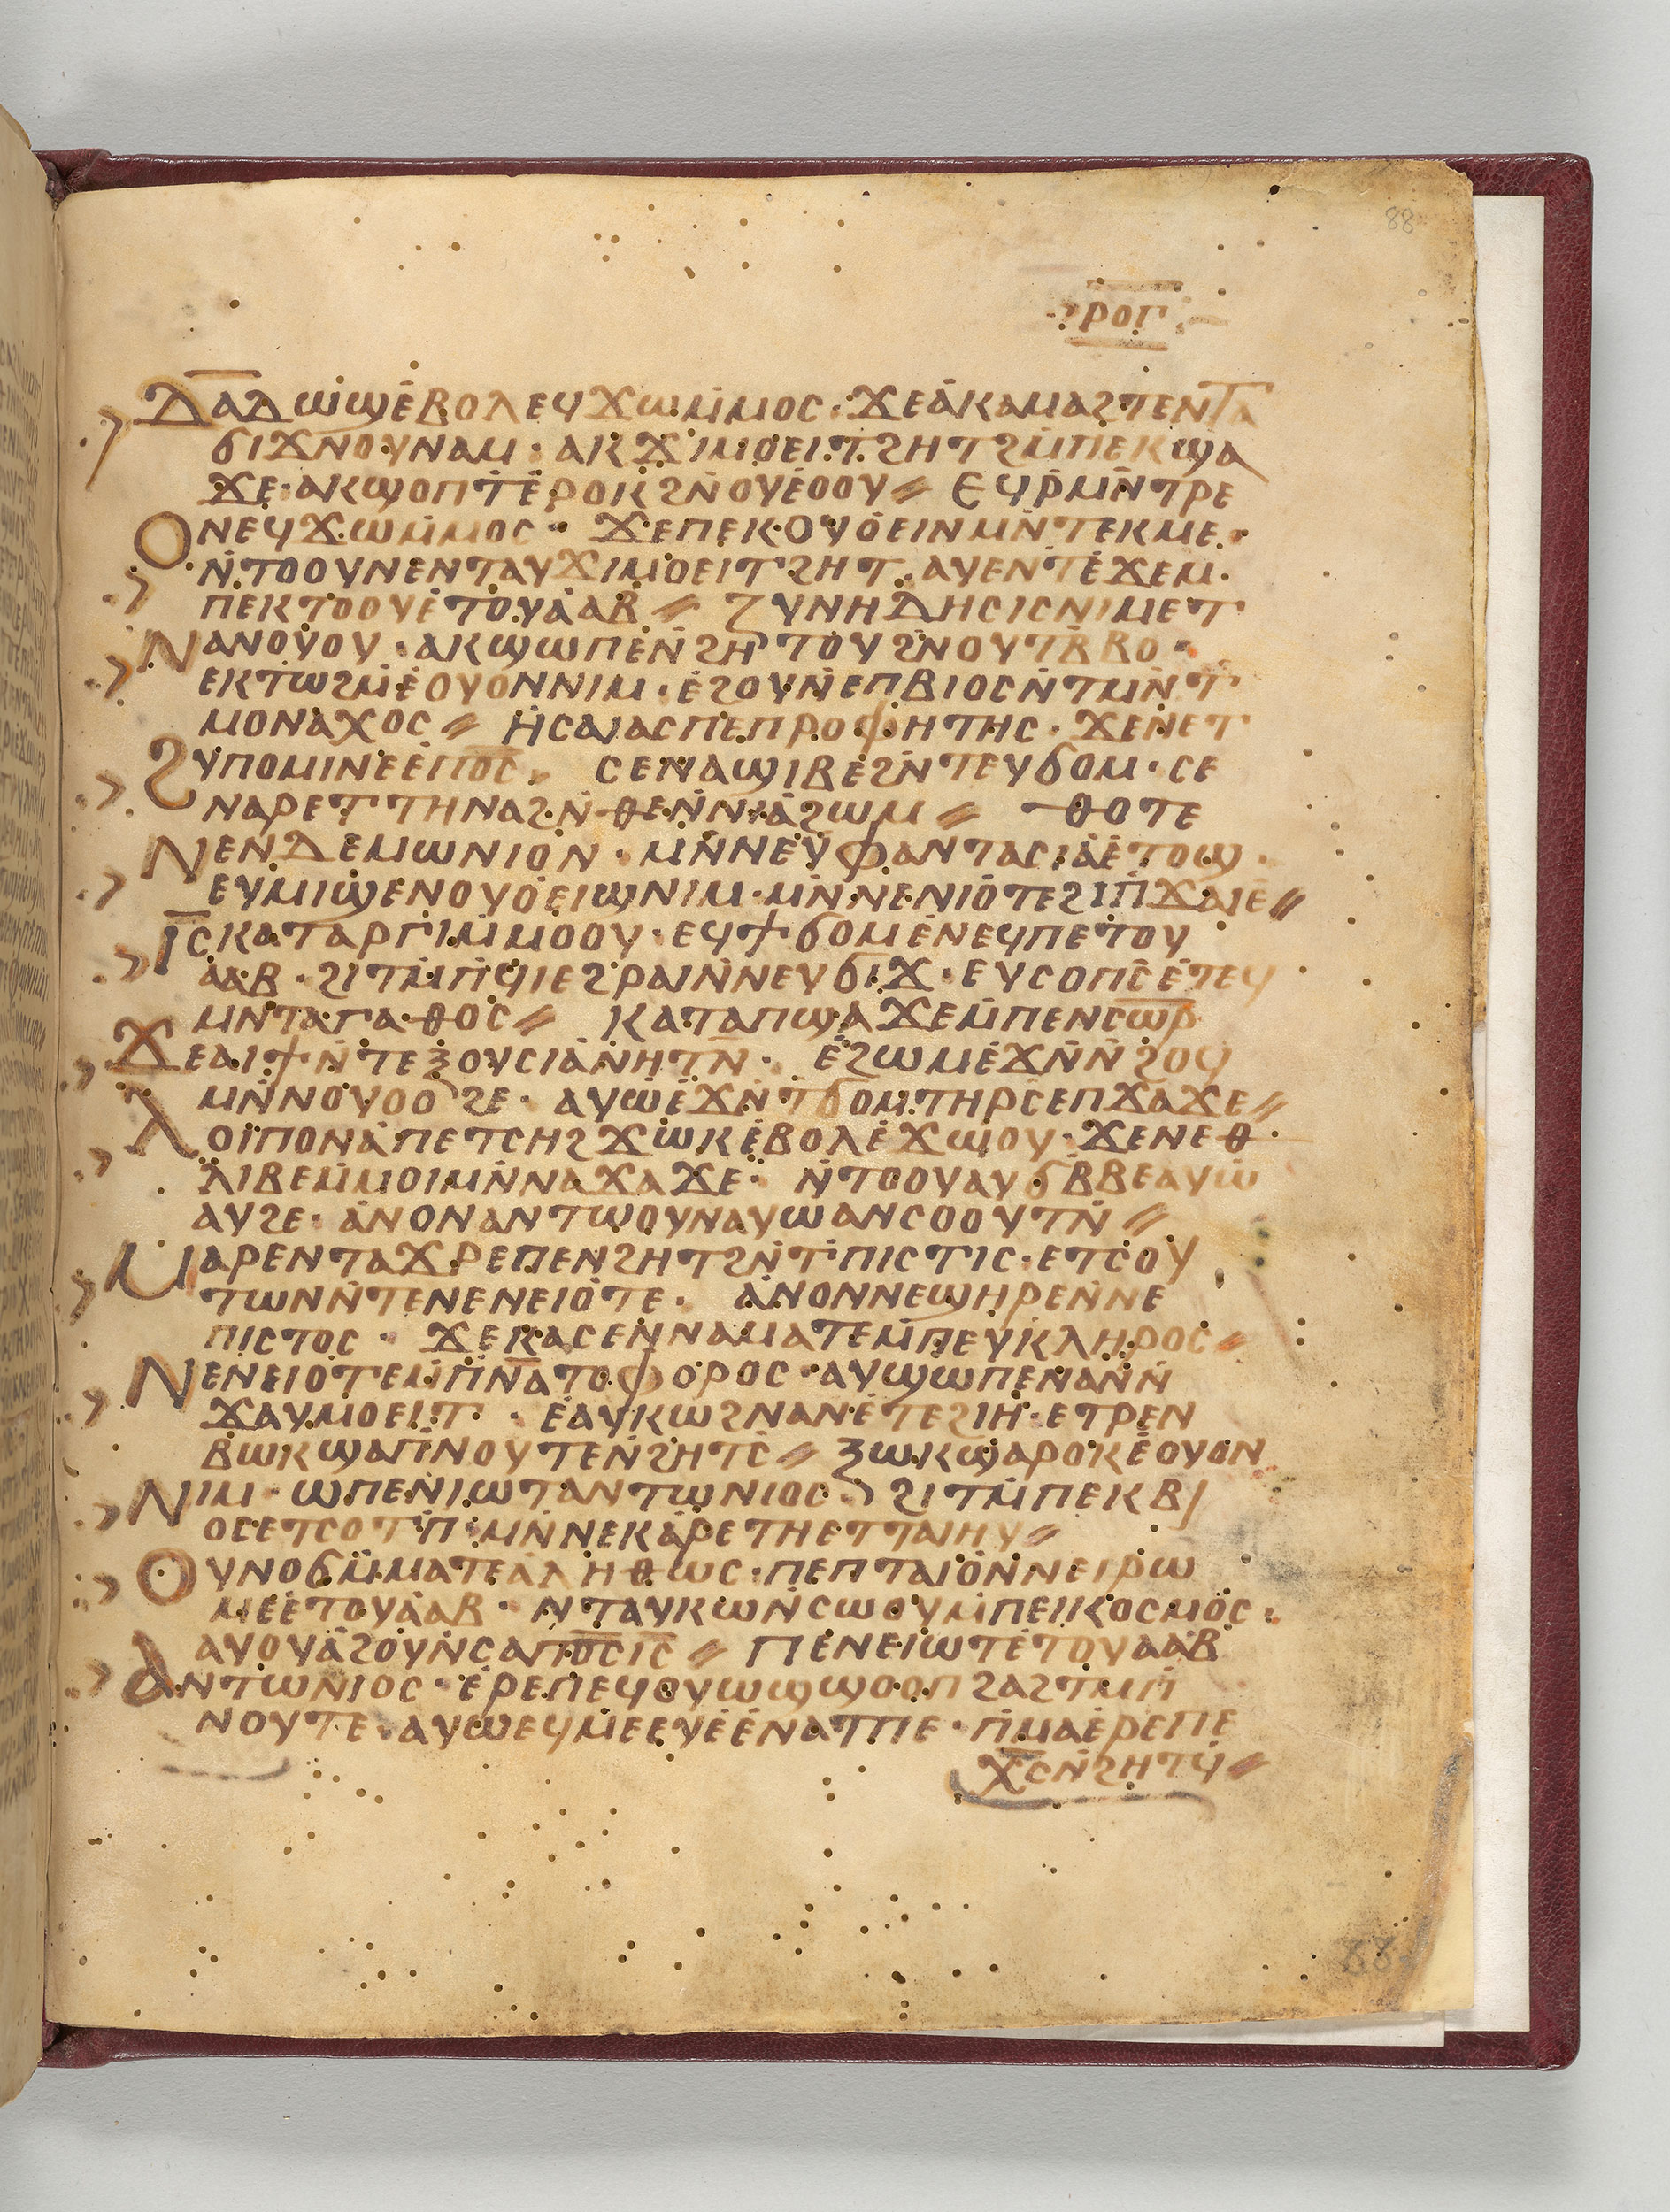 88
ⲣⲟⲅ
ⲇⲁⲇ ⲱϣⲉⲃⲟⲗⲉϥϫⲱⲙⲙⲟⲥ· ϫⲉⲁⲕⲁⲙⲁϩⲧⲉⲛⲧⲁ
ϭⲓϫⲛⲟⲩⲛⲁⲙ· ⲁⲕϫⲓⲙⲟⲉⲓⲧϩⲏⲧϩⲙⲡⲉⲕϣⲁ
ϫⲉ· ⲁⲕϣⲟⲡⲧⲉⲣⲟⲕϩⲛⲟⲩⲉⲟⲟⲩ⸗ ⲉϥⲣⲙⲛⲧⲣⲉ
ⲟⲛⲉϥϫⲱⲙⲙⲟⲥ· ϫⲉⲡⲉⲕⲟⲩⲟⲉⲓⲛⲙⲛⲧⲉⲕⲙⲉ·
ⲛⲧⲟⲟⲩⲛⲉⲛⲧⲁⲩϫⲓⲙⲟⲉⲓⲧϩⲏⲧ· ⲁⲩⲉⲛⲧⲉϫⲉⲙ·
ⲡⲉⲕⲧⲟⲟⲩⲉⲧⲟⲩⲁⲁⲃ⸗ ⲍⲩⲛⲏⲇⲏⲥⲓⲥⲛⲓⲙⲉⲧ
ⲛⲁⲛⲟⲩⲟⲩ· ⲁⲕϣⲱⲡⲉⲛϩⲏⲧⲟⲩϩⲛⲟⲩⲧⲃⲃⲟ·
ⲉⲕⲧⲱϩⲙⲉⲟⲩⲟⲛⲛⲓⲙ· ⲉϩⲟⲩⲛⲉⲡⲃⲓⲟⲥⲛⲧⲙⲛⲧ
ⲙⲟⲛⲁⲭⲟⲥ⸗ ⲏⲥⲁⲓⲁⲥⲡⲉⲡⲣⲟⲫⲏⲧⲏⲥ· ϫⲉⲛⲉⲧ
ϩⲩⲡⲟⲙⲓⲛⲉⲉⲡⲟ̅ⲥ̅· ⲥⲉⲛⲁϣⲓⲃⲉϩⲛⲧⲉⲩϭⲟⲙ· ⲥⲉ
ⲛⲁⲣⲉⲧⲧⲏⲛⲁϩⲛⲑⲉⲛⲛⲓⲁϩⲱⲙ⸗ ⲑⲟⲧⲉ
ⲛⲉⲛⲇⲉⲙⲱⲛⲓⲟⲛ· ⲙⲛⲛⲉⲩⲫⲁⲛⲧⲁⲥⲓⲁⲉⲧⲟϣ·
ⲉⲩⲙⲓϣⲉⲛⲟⲩⲟⲉⲓϣⲛⲓⲙ· ⲙⲛⲛⲉⲛⲓⲟⲧⲉϩⲓⲡϫⲁⲓⲉ⸗
ⲓ̅ⲥ̅ⲕⲁⲧⲁⲣⲅⲓⲙⲙⲟⲟⲩ· ⲉϥϯϭⲟⲙⲉⲛⲉϥⲡⲉⲧⲟⲩ
ⲁⲁⲃ· ϩⲓⲧⲙⲡϥⲓⲉϩⲣⲁⲓⲛⲛⲉⲩϭⲓϫ· ⲉⲩⲥⲟⲡⲥⲉⲧⲉϥ
ⲙⲛⲧⲁⲅⲁⲑⲟⲥ⸗ ⲕⲁⲧⲁⲡϣⲁϫⲉⲙⲡⲉⲛⲥⲱ̅ⲣ̅
ϫⲉⲁⲓϯⲛⲧⲉⲝⲟⲩⲥⲓⲁⲛⲏⲧⲛ· ⲉϩⲱⲙⲉϫⲛⲛϩⲟϥ
ⲙⲛⲛⲟⲩⲟⲟϩⲉ· ⲁⲩⲱⲉϫⲛⲧϭⲟⲙⲧⲏⲣⲥⲉⲡϫⲁϫⲉ⸗
ⲗⲟⲓⲡⲟⲛⲁⲡⲉⲧⲥⲏϩϫⲱⲕⲉⲃⲟⲗⲉϫⲱⲟⲩ· ϫⲉⲛⲉⲑ·
ⲗⲓⲃⲉⲙⲙⲟⲓⲙⲛⲛⲁϫⲁϫⲉ· ⲛⲧⲟⲟⲩⲁⲩϭⲃⲃⲉⲁⲩⲱ
ⲁⲩϩⲉ· ⲁⲛⲟⲛⲁⲛⲧⲱⲟⲩⲛⲁⲩⲱⲁⲛⲥⲟⲟⲩⲧⲛ⸗
ⲙⲁⲣⲉⲛⲧⲁϫⲣⲉⲡⲉⲛϩⲏⲧϩⲛⲧⲡⲓⲥⲧⲓⲥ· ⲉⲧⲥⲟⲩ
ⲧⲱⲛⲛⲧⲉⲛⲉⲛⲉⲓⲟⲧⲉ· ⲁⲛⲟⲛⲛⲉϣⲏⲣⲉⲛⲛⲉ
ⲡⲓⲥⲧⲟⲥ· ϫⲉⲕⲁⲥⲉⲛⲛⲁⲙⲁⲧⲉⲙⲡⲉⲩⲕⲗⲏⲣⲟⲥ⸗
ⲛⲉⲛⲉⲓⲟⲧⲉⲙⲡⲛ̅ⲁ̅ⲧⲟⲫⲟⲣⲟⲥ· ⲁⲩϣⲱⲡⲉⲛⲁⲛⲛ
ϫⲁⲩⲙⲟⲉⲓⲧ· ⲉⲁⲩⲕⲱϩⲛⲁⲛⲉⲧⲉϩⲓⲏ· ⲉⲧⲣⲉⲛ
ⲃⲱⲕϣⲁⲡⲛⲟⲩⲧⲉⲛϩⲏⲧⲥ⸗ ⲝⲱⲕϣⲁⲣⲟⲕⲉⲟⲩⲟⲛ
ⲛⲓⲙ· ⲱⲡⲉⲛⲓⲱⲧⲁⲛⲧⲱⲛⲓⲟⲥ ϩⲓⲧⲙⲡⲉⲕⲃⲓ
ⲟⲥⲉⲧⲥⲟⲧⲡ· ⲙⲛⲛⲉⲕⲁⲣⲉⲧⲏⲉⲧⲧⲁⲓⲏⲩ⸗
ⲟⲩⲛⲟϭⲙⲙⲁⲧⲉⲁⲗⲏⲑⲱⲥ· ⲡⲉⲡⲧⲁⲓⲟⲛⲛⲉⲓⲣⲱ
ⲙⲉⲉⲧⲟⲩⲁⲁⲃ· ⲛⲧⲁⲩⲕⲱⲛⲥⲱⲟⲩⲙⲡⲉⲓⲕⲟⲥⲙⲟⲥ·
ⲁⲩⲟⲩⲁϩⲟⲩⲛⲥⲁⲡⲟ̅ⲥ̅ⲓ̅ⲥ̅⸗ ⲡⲉⲛⲉⲓⲱⲧⲉⲧⲟⲩⲁⲁⲃ
ⲁⲛⲧⲱⲛⲓⲟⲥ· ⲉⲣⲉⲡⲉϥⲟⲩⲱϣϣⲟⲟⲡϩⲁϩⲧⲙⲡ
ⲛⲟⲩⲧⲉ· ⲁⲩⲱⲉϥⲙⲉⲉⲩⲉⲉⲛⲁⲧⲡⲉ· ⲡⲙⲁⲉⲣⲉⲡⲉ
ⲭ̅ⲥ̅ⲛϩⲏⲧϥ⸗
88